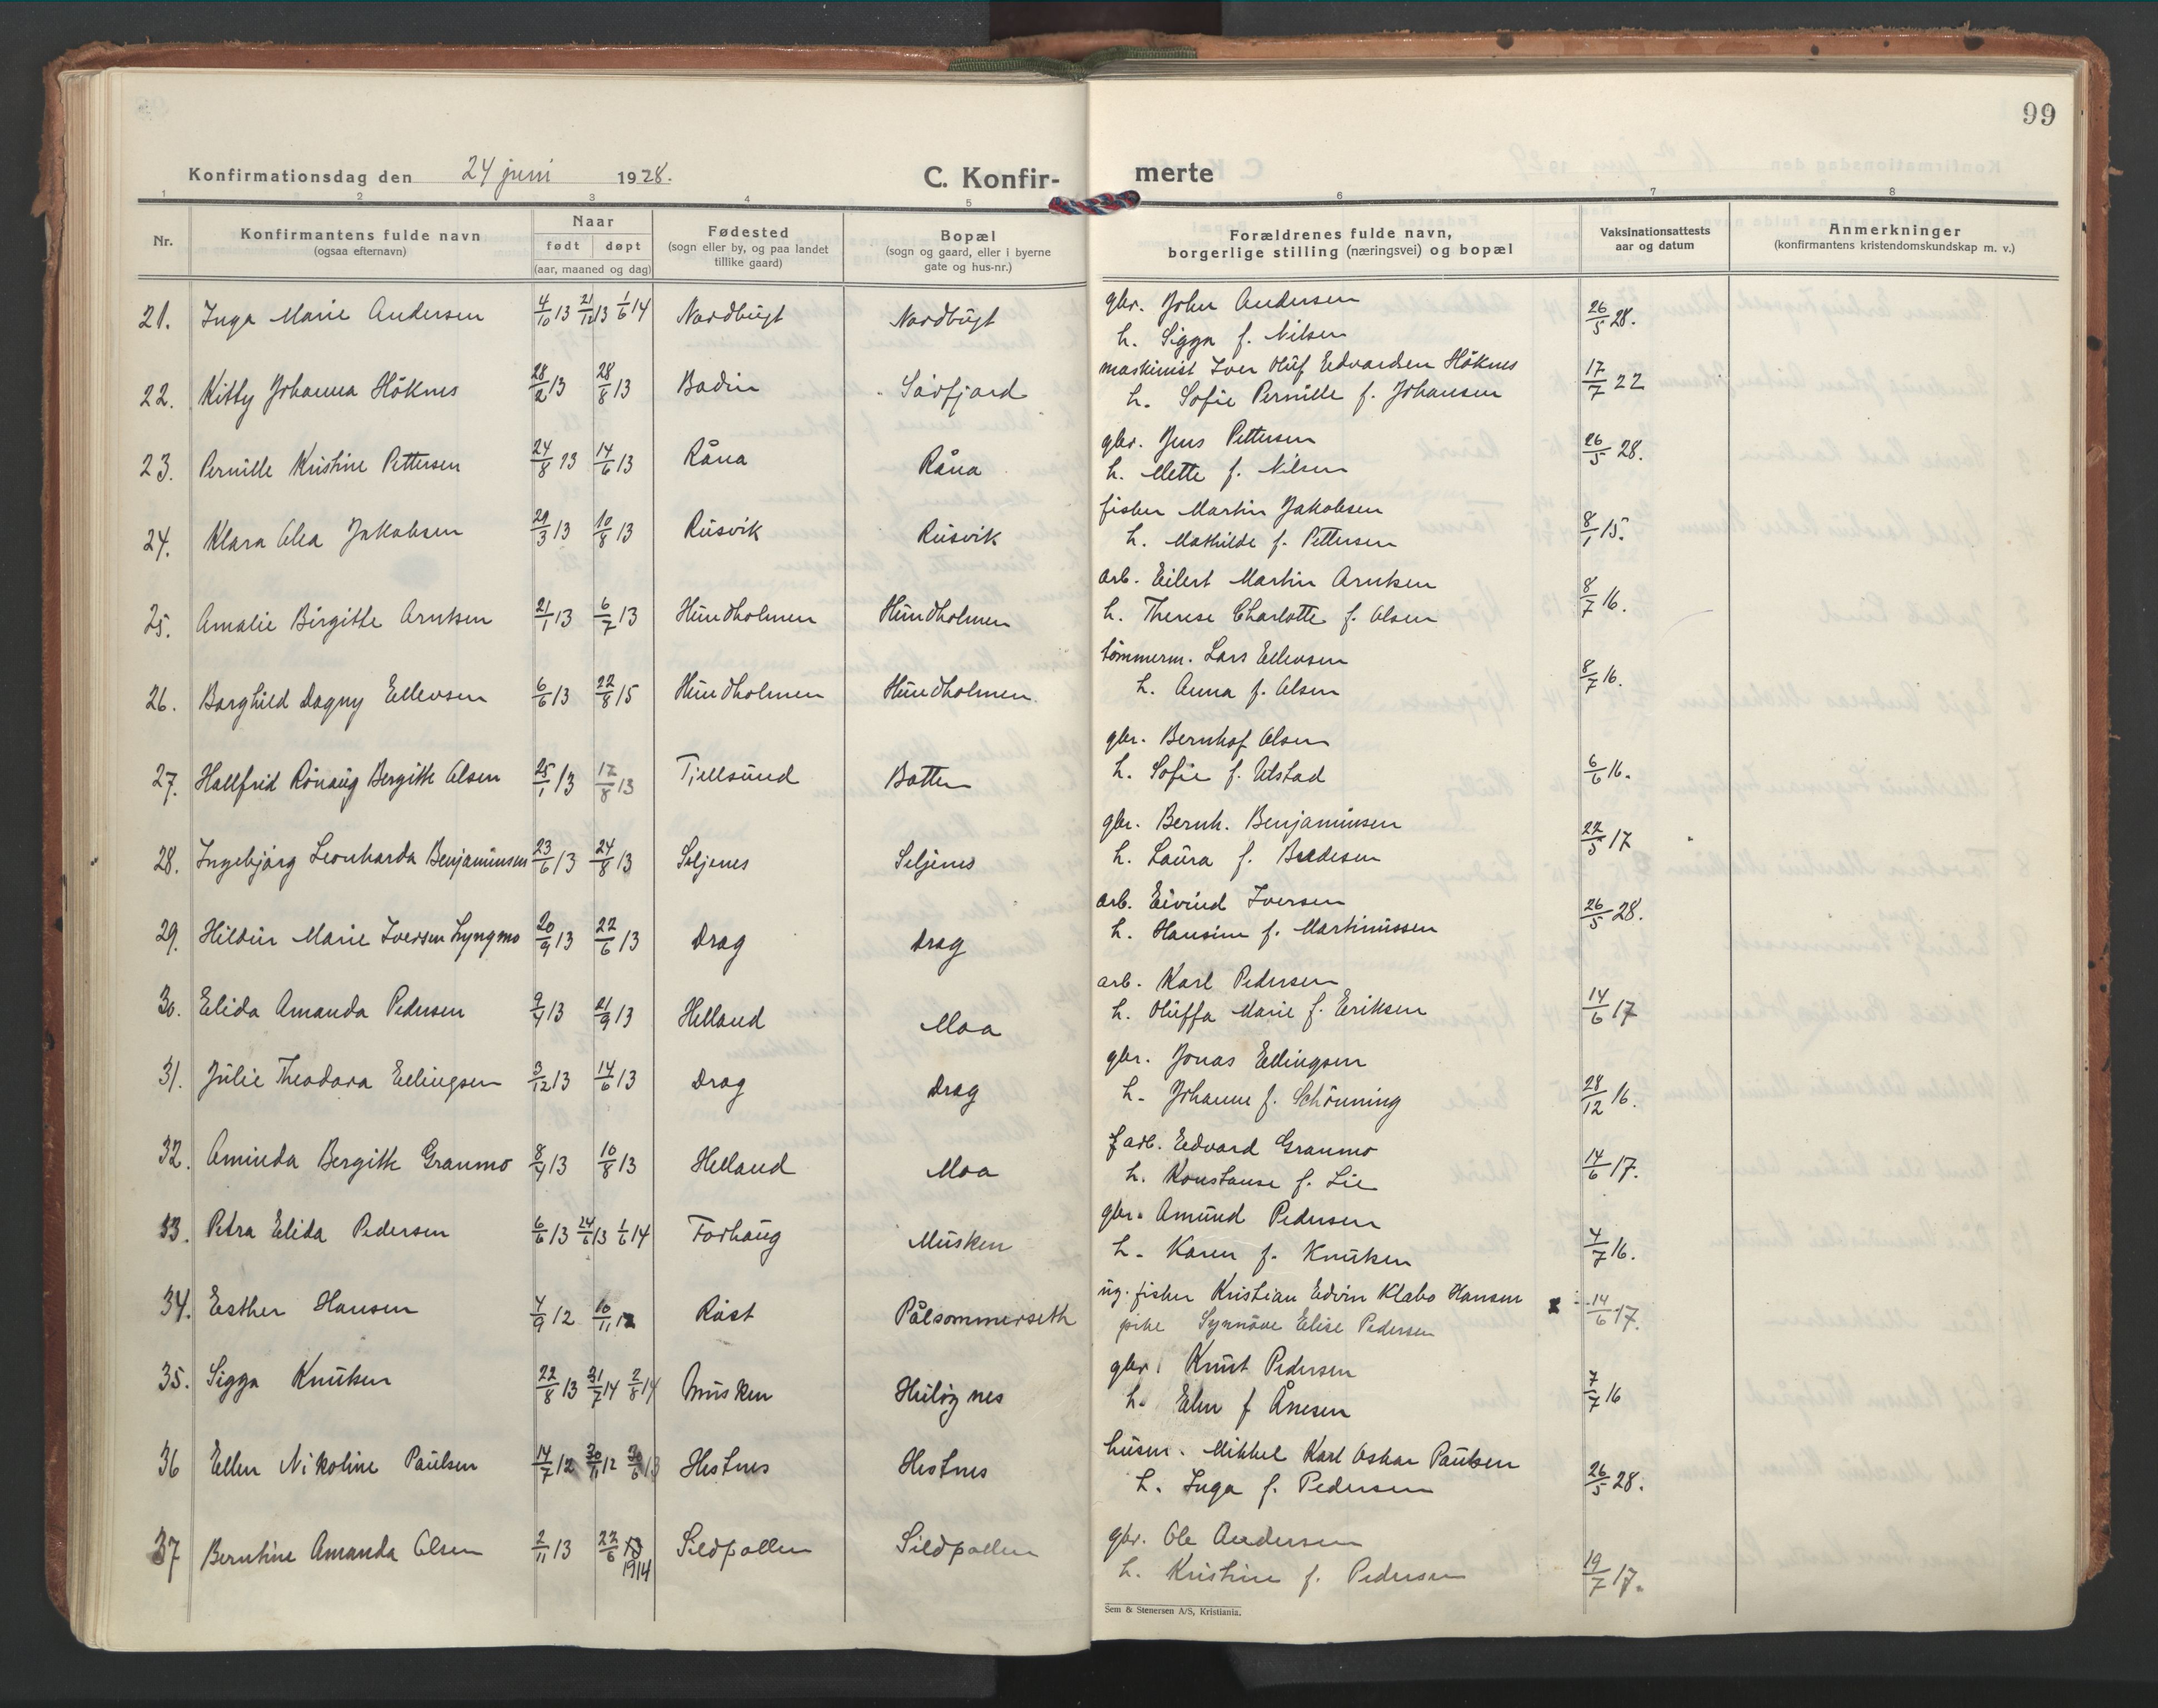 99
Konfirmationsdag den 24 juni 1928.
C. Konfir-
merte
1 2 3 4 5 6 7 8
Nr.
Konfirmantens fulde navn
(ogsaa efternavn)
Naar
født døpt
(aar, maaned og dag)
Fødested
(sogn eller by, og paa landet
tillike gaard)
Bopæl
(sogn og gaard, eller i byerne
gate og hus-nr.)
Forældrenes fulde navn,
borgerlige stilling (næringsvei) og bopæl
Vaksinationsattests
aar og datum
Anmerkninger
(konfirmantens kristendomskundskap m. v.)
21. Inga Marie Andersen 4/10 13 21/12 13 1/6 14 Nordbugt Nordbugt gbr. John Andersen 26/5 28.
h. Sigga f. Nilsen
22. Kitty Johanna Höknes 28/2 13 28/8 13 Bodin Sørfjord maskinist Iver Oluf Edvardsen Höknes 17/7 22
h. Sofie Pernille f. Johansen
23. Pernille Kristine Pettersen 24/8 13 14/6 13 Råna Råna gbr. Jens Pettersen 26/5 28.
h. Mette f. Nilsen
24. Klara Olea Jakobsen 29/3 13 10/8 13 Rusvik Rusvik fisker Martin Jakobsen 8/1 15.
h. Mathilde f. Pettersen
25. Amalie Birgitte Arntsen 21/1 13 6/7 13 Hundholmen Hundholmen arb. Eilert Martin Arntsen 8/7 16.
h. Therese Charlotte f. Olsen
26. Borghild Dagny Ellevsen 6/6 13 22/8 15 Hundholmen Hundholmen. tömmerm. Lars Ellevsen 8/7 16.
h. Anna f. Olsen
27. Hallfrid Rönaug Bergitte Olsen 25/1 13 17/8 13 Tjellsund Botten gbr. Bernhof Olsen 6/6 16.
h. Sofie f. Ulstad
28. Ingebjörg Leonharda Benjaminsen 23/6 13 24/8 13 Seljenes Seljenes gbr. Bernh. Benjaminsen 22/5 17
h. Laura f. Bredesen
29. Hildur Marie Iversen Lyngmo 20/9 13 22/6 13 Drag Drag arb. Eivind Iversen 26/5 28.
h. Hansine f. Martinussen
30. Elida Amanda Pedersen 9/4 13 21/9 13 Helland Moa arb. Karl Pedersen 14/6 17
h. Oluffa Marie f. Eriksen
31. Julie Theodora Ellingsen 3/12 13 14/6 13 Drag Drag gbr. Jonas Ellingsen 28/12 16.
h. Johanne f. Schönning
32. Aminda Bergitte Granmo 8/4 13 10/8 13 Helland Moa f arb. Edvard Granmo 14/6 17.
h. Konstanse f. Lie
33. Petra Elida Pedersen 6/6 13 24/6 13 1/6 14 Forhaug Musken gbr. Amund Pedersen 4/7 16.
h. Karen f. Knutsen
34. Esther Hansen 4/9 12 10/11 12 Röst Pålsommerseth ug. fisker Kristian Edvin Klabo Hansen x 14/6 17.
pike Synnöve Elise Pedersen
35. Sigga Knutsen 22/8 13 31/7 14 2/8 14 Musken Hulöynes gbr. Knut Pedersen 7/7 16
h. Elen f Ånesen
36 Ellen Nikoline Paulsen 14/7 12 30/11 12 6/13 Hestnes Hestnes husm. Mikkel Karl Oskar Paulsen 26/5 28.
h. Inga f. Pedersen
37 Berntine Amanda Olsen 2/11 13 22/6 13 1914 Sildpollen Sildpollen gbr. Ole Andersen 19/7 17.
h. Kristine f. Pedersen
Sem & Stenersen A/S, Kristiania.